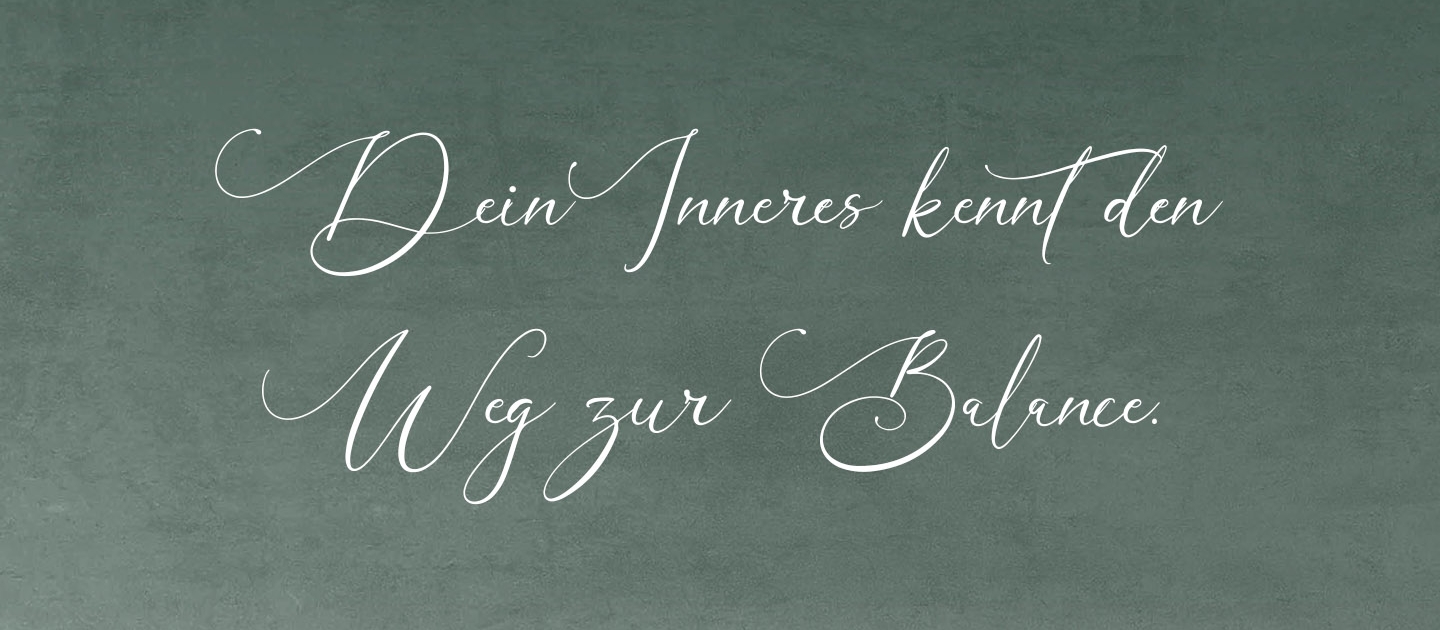 Dein Inneres kennt den
Weg zur Balance.